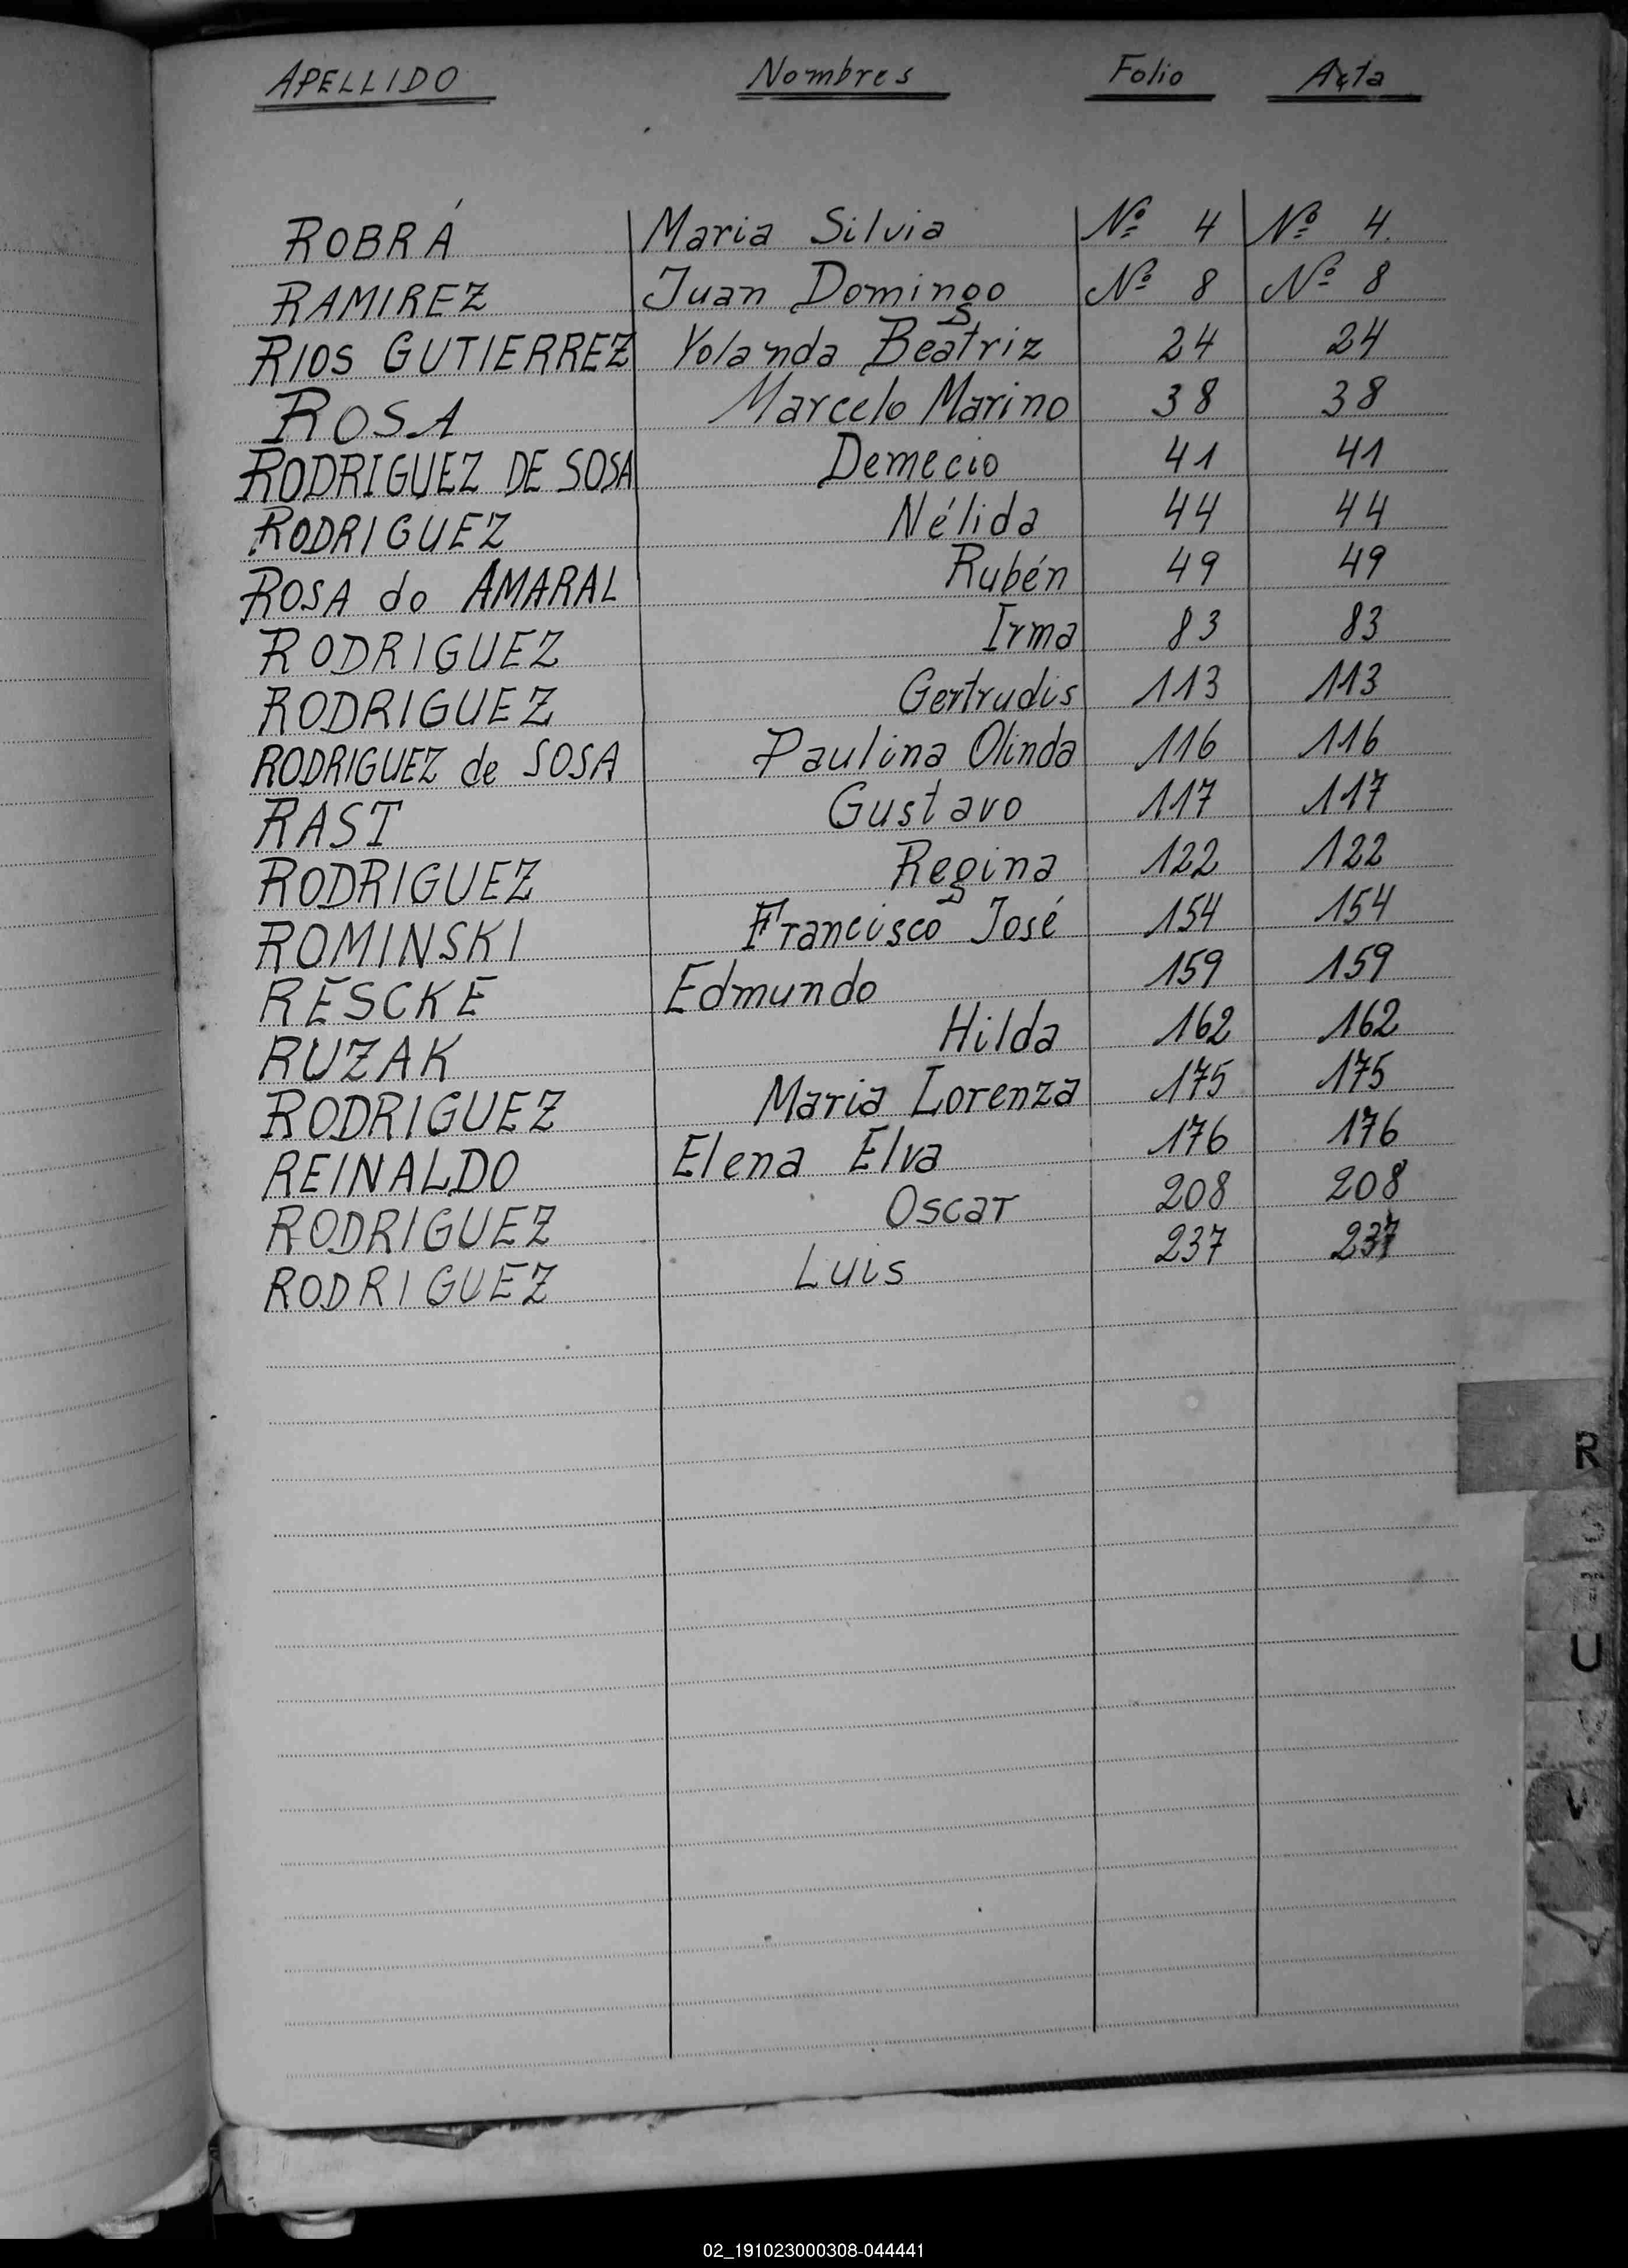 APELLIDO Nombres Folio Acta
ROBRÁ Maria Silvia Nº 4 Nº 4.
RAMIREZ Juan Domingo Nº 8 Nº 8
RIOS GUTIERREZ Yolanda Beatriz 24 24
ROSA Marcelo Marino 38 38
RODRIGUEZ DE SOSA Demecio 41 41
RODRIGUEZ Nélida 44 44
ROSA do AMARAL Rubén 49 49
RODRIGUEZ Irma 83 83
RODRIGUEZ Gertrudis 113 113
RODRIGUEZ de SOSA Paulina Olinda 116 116
RAST Gustavo 117 117
RODRIGUEZ Regina 122 122
ROMINSKI Francisco José 154 154
RESCKE Edmundo 159 159
RUZAK Hilda 162 162
RODRIGUEZ Maria Lorenza 175 175
REINALDO Elena Elva 176 176
RODRIGUEZ Oscar 208 208
RODRIGUEZ Luis 237 237
R
U
V
02_191023000308-044441